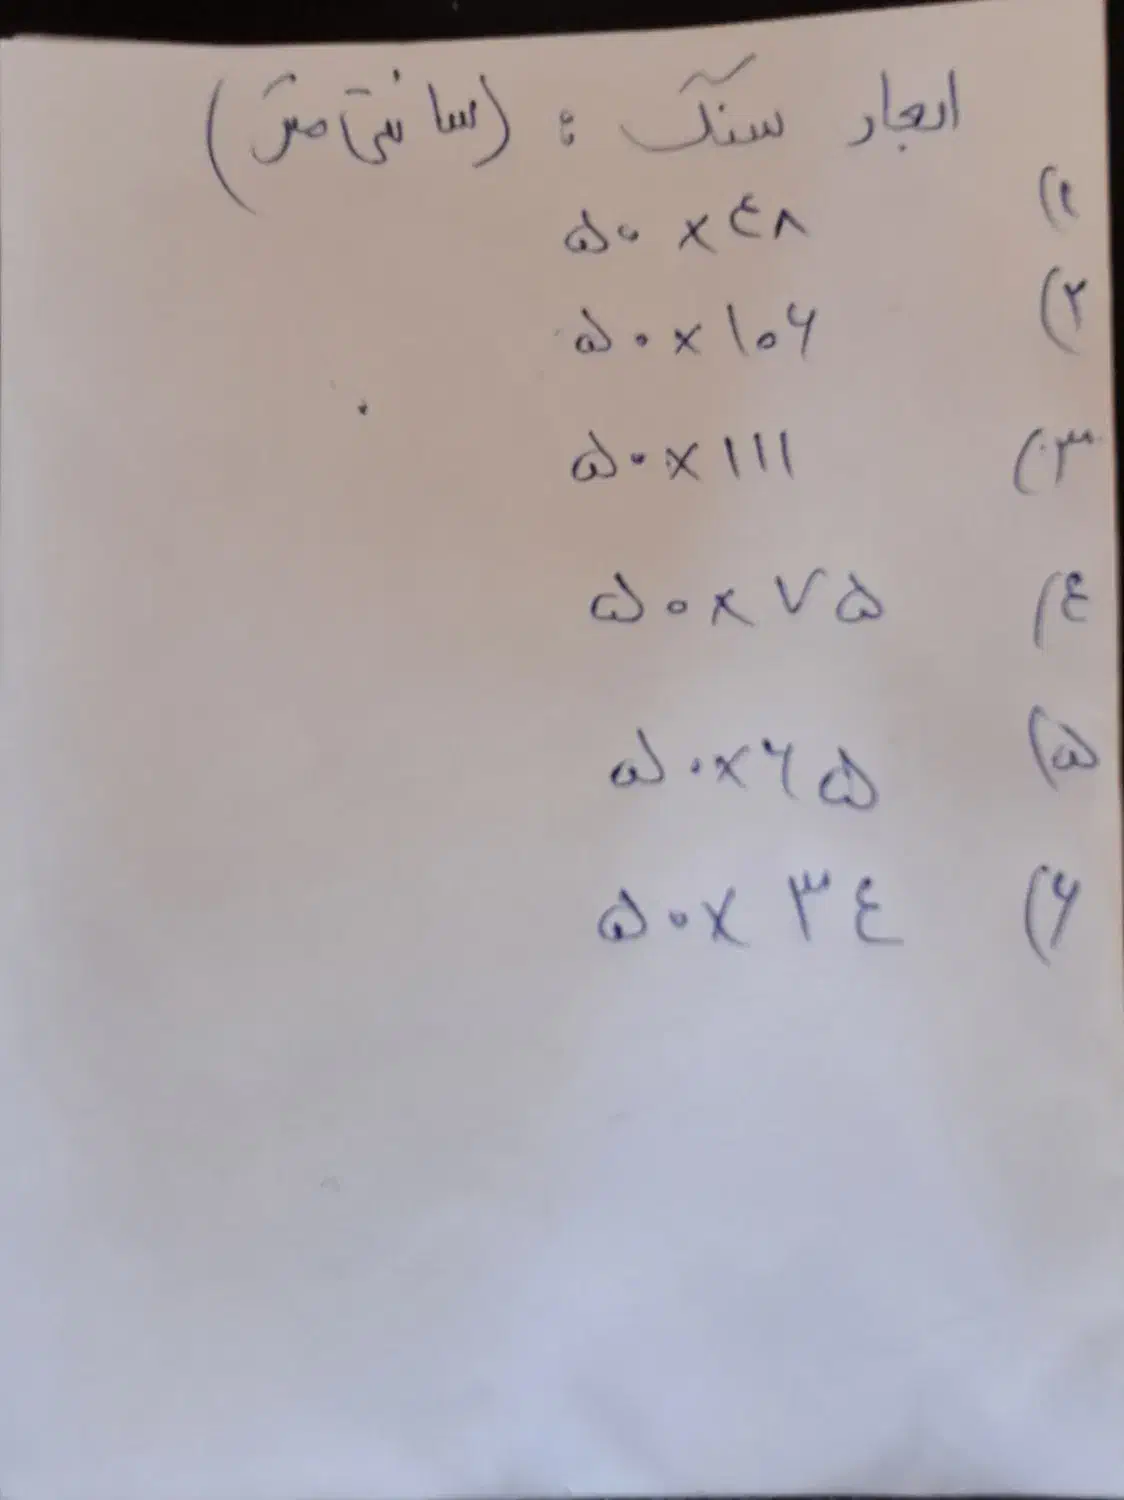 ابعاد سنگ : (سانتی متر)
۱) ۵۰ × ۴۸
۲) ۵۰ × ۱۰۶
۳) ۵۰ × ۱۱۱
۴) ۵۰ × ۷۵
۵) ۵۰ × ۶۵
۶) ۵۰ × ۳۴